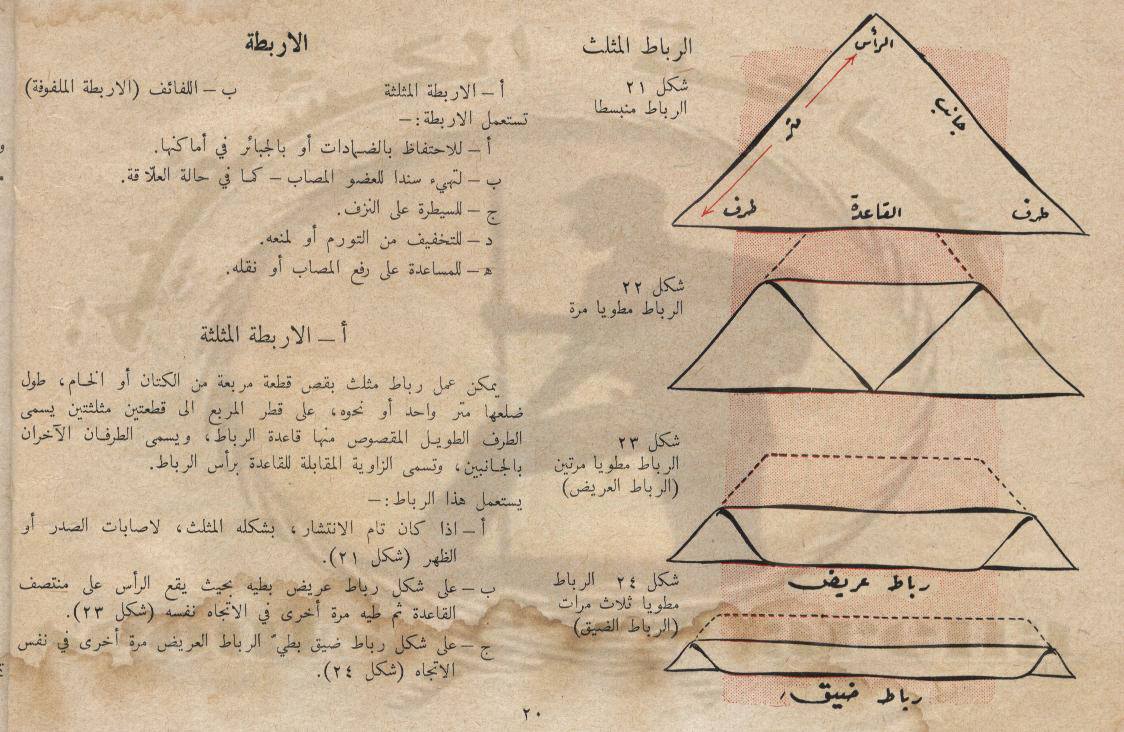 الرباط المثلث
شكل ٢١
الرباط منبسطا
الرأس
جانب
متر
طرف
القاعدة
طرف
شكل ٢٢
الرباط مطويا مرة
شكل ٢٣
الرباط مطويا مرتين
(الرباط العريض)
رباط عريض
شكل ٢٤ الرباط
مطويا ثلاث مرات
(الرباط الضيق)
رباط ضيق
الاربطة
أ – الاربطة المثلثة
ب – اللفائف (الاربطة الملفوفة)
تستعمل الاربطة: –
أ – للاحتفاظ بالضمادات أو بالجبائر في أماكنها.
ب – لتهيء سندا للعضو المصاب – كما في حالة العلّاقة.
ج – للسيطرة على النزف.
د – للتخفيف من التورم أو لمنعه.
ه – للمساعدة على رفع المصاب أو نقله.
أ – الاربطة المثلثة
يمكن عمل رباط مثلث بقص قطعة مربعة من الكتان أو الخام، طول
ضلعها متر واحد أو نحوه، على قطر المربع الى قطعتين مثلثتين يسمى
الطرف الطويل المقصوص منها قاعدة الرباط، ويسمى الطرفان الآخران
بالجانبين، وتسمى الزاوية المقابلة للقاعدة برأس الرباط.
يستعمل هذا الرباط: –
أ – اذا كان تام الانتشار، بشكله المثلث، لاصابات الصدر أو
الظهر (شكل ٢١).
ب – على شكل رباط عريض بطيه بحيث يقع الرأس على منتصف
القاعدة ثم طيه مرة أخرى في الاتجاه نفسه (شكل ٢٣).
ج – على شكل رباط ضيق بطيّ الرباط العريض مرة أخرى في نفس
الاتجاه (شكل ٢٤).
٢٠